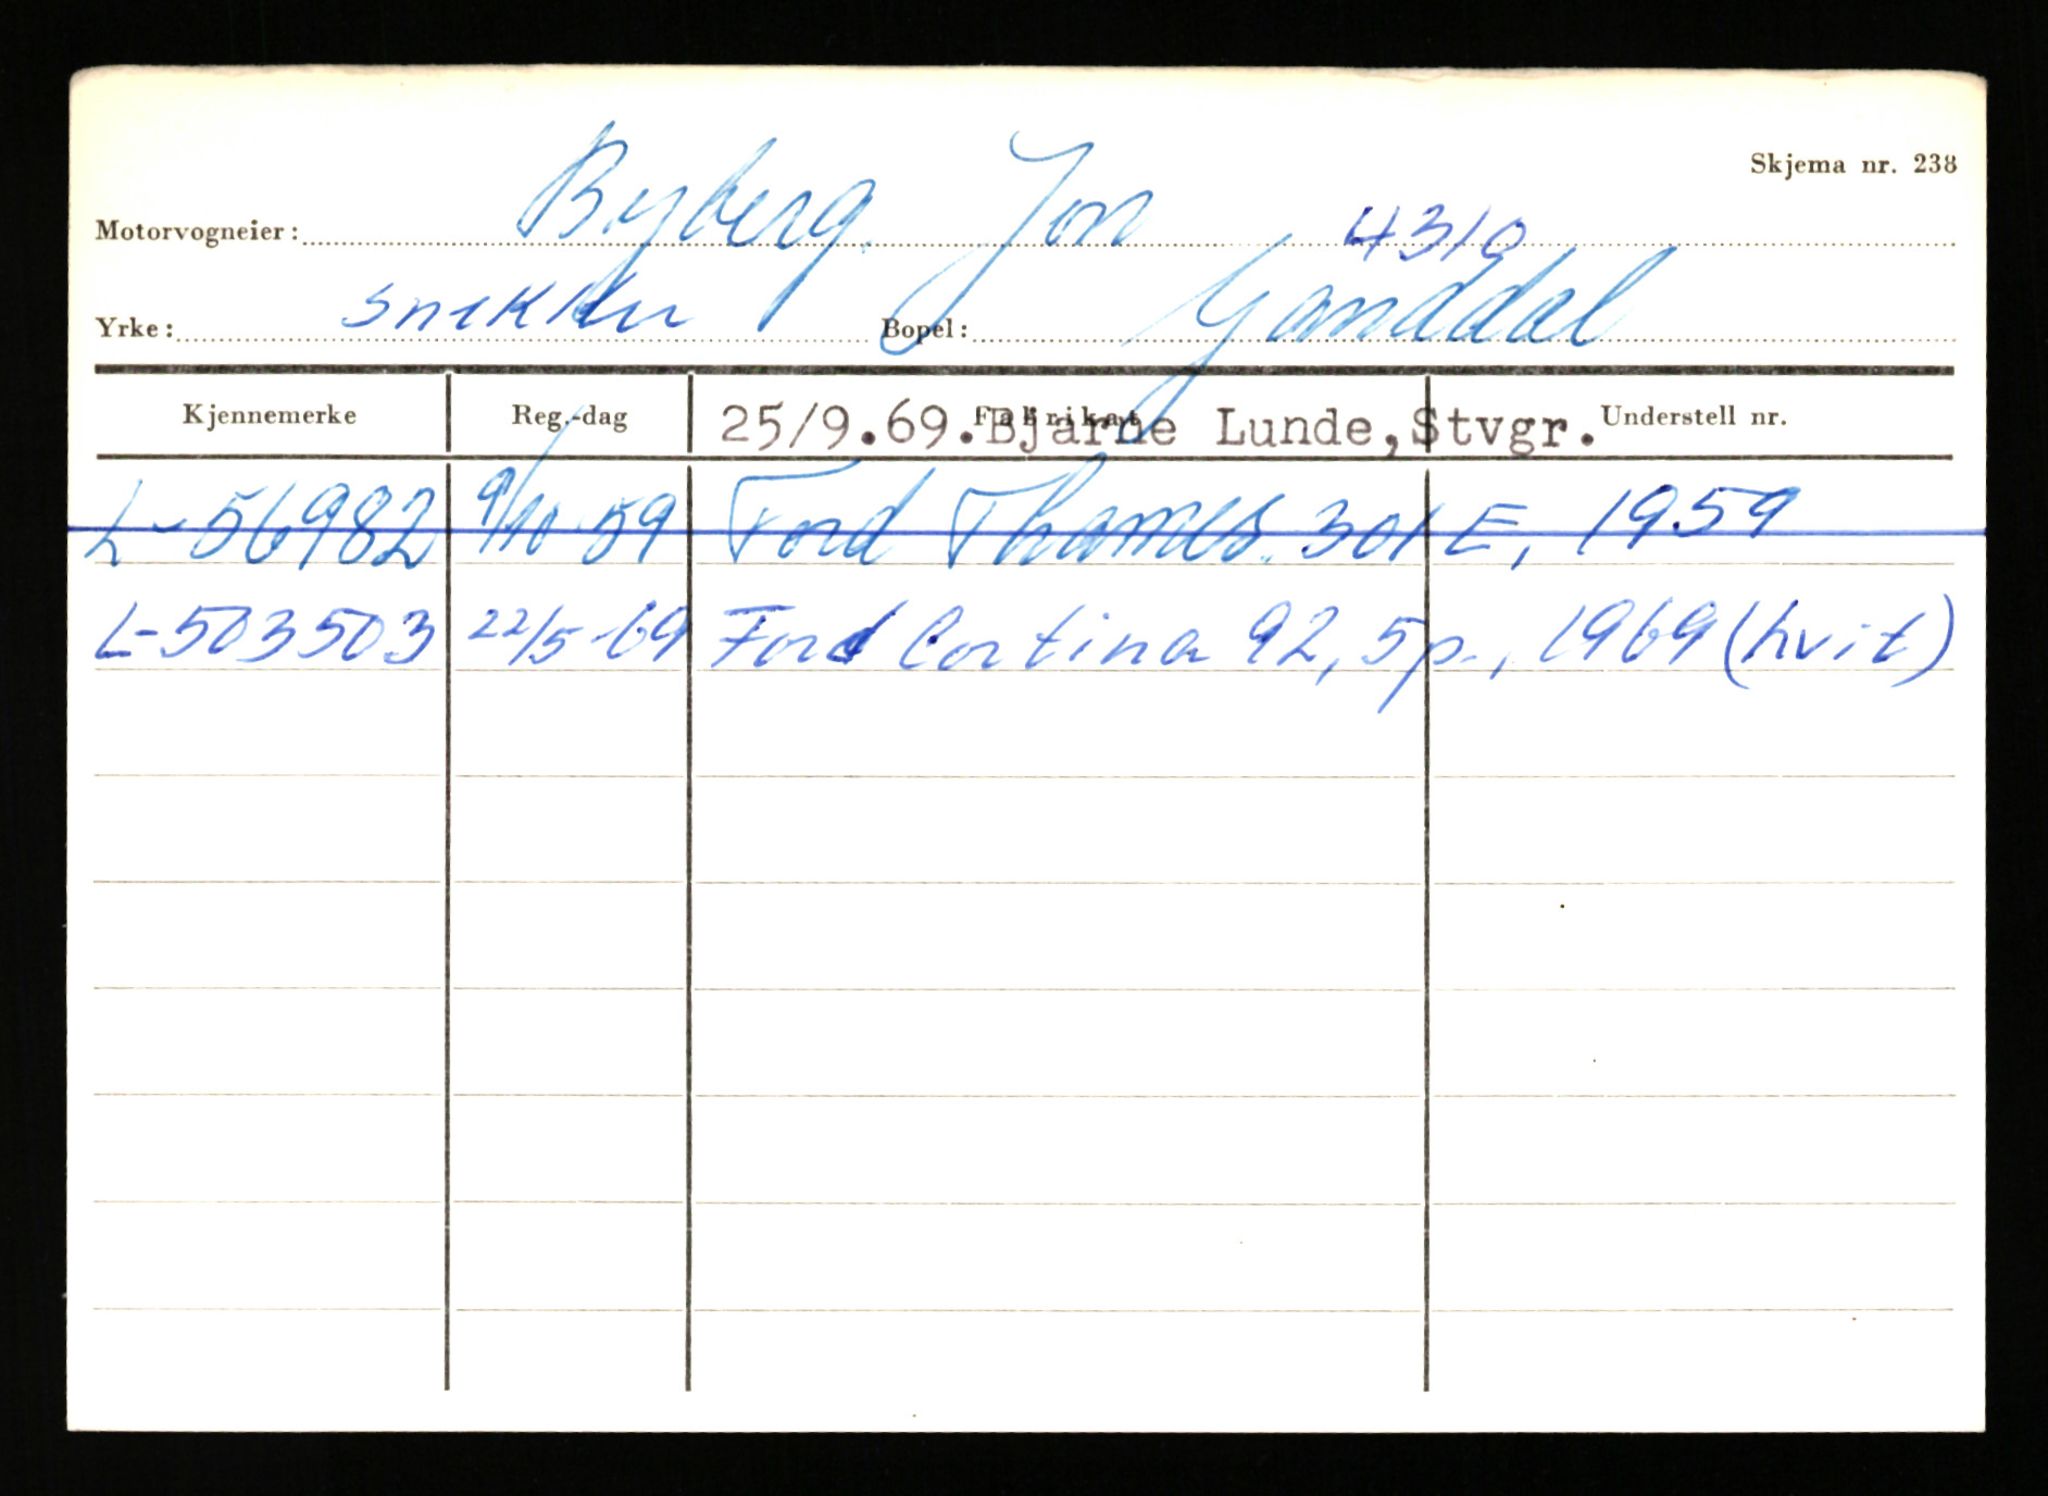 Skjema nr. 238
Motorvogneier: Byberg. Jon 4310
Yrke: snekker Bopel: Ganddal
Kjennemerke Reg.-dag Fabrikat Understell nr.
25/9.69.Bjarne Lunde,Stvgr.
L-56982 9/10-59 Ford Thames. 301 E, 1959
L-503503 22/5-69 Ford Cortina 92, 5p., 1969 (hvit)